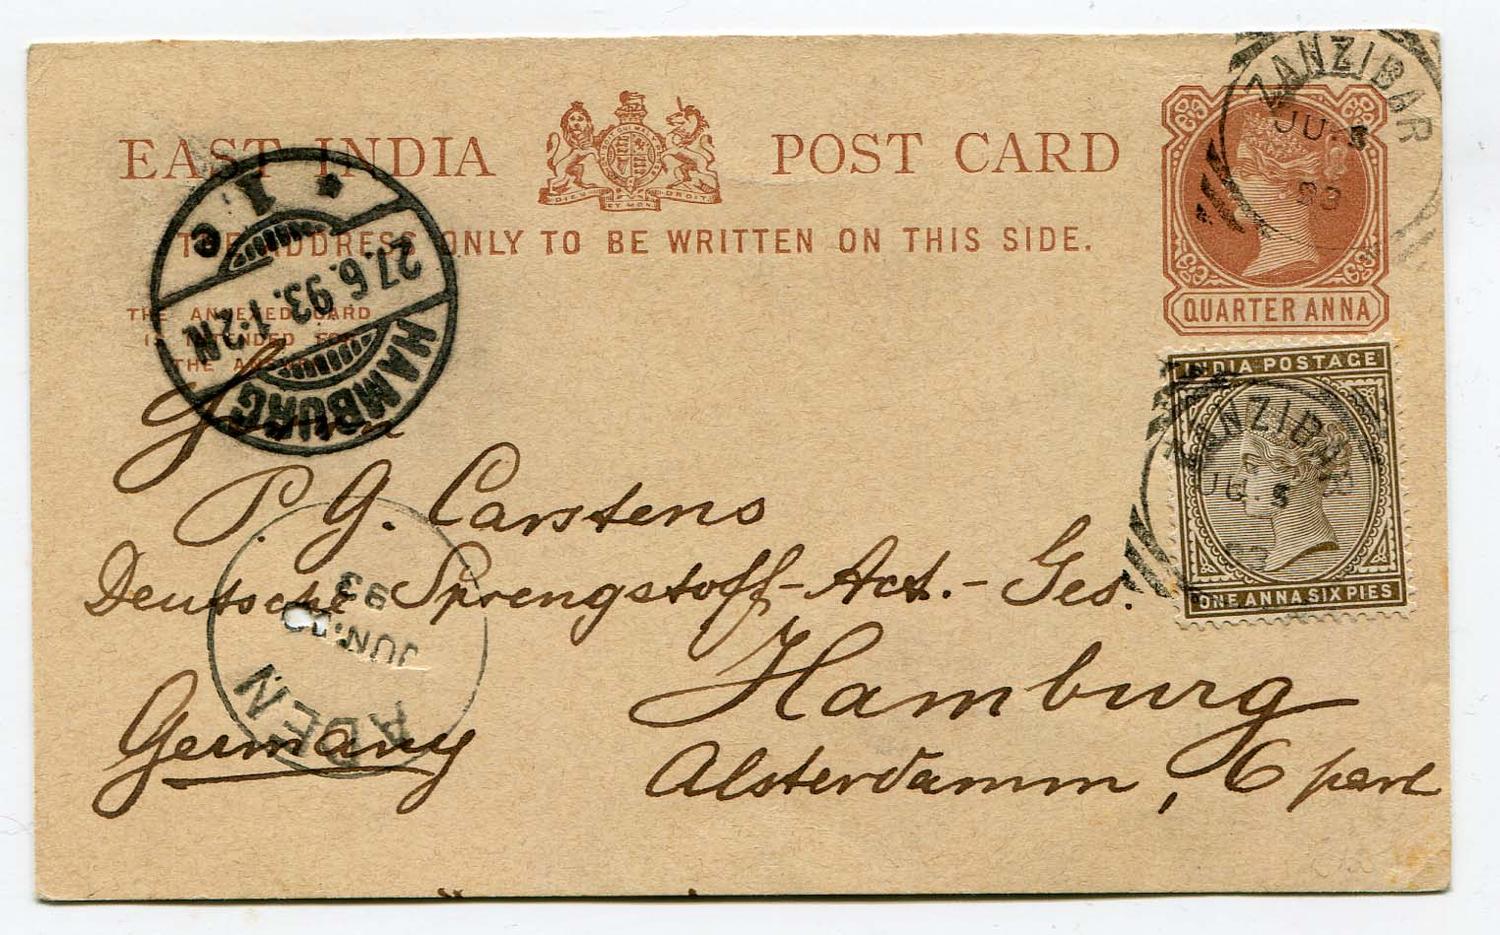 EAST INDIA POST CARD
DIEU ET MON DROIT
THE ADDRESS ONLY TO BE WRITTEN ON THIS SIDE.
THE ANNEXED CARD
IS INTENDED FOR
THE ANSWER
QUARTER ANNA
ZANZIBAR
JU. 5
93
INDIA POSTAGE
ONE ANNA SIX PIES
ZANZIBAR
JU. 5
HAMBURG
27.6.93.1-2N
* 1 c
Herrn
P. G. Carstens
Deutsche Sprengstoff-Act.-Ges.
Hamburg
Alsterdamm,
Germany
ADEN
JUN.
93